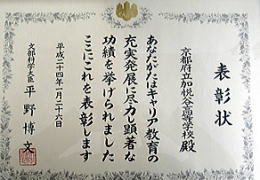 表彰状
京都府立加悦谷高等学校殿
あなたがたはキャリア教育の
充実発展に尽力し顕著な
功績を挙げられました
ここにこれを表彰します
平成二十四年一月二十六日
文部科学大臣
平野博文